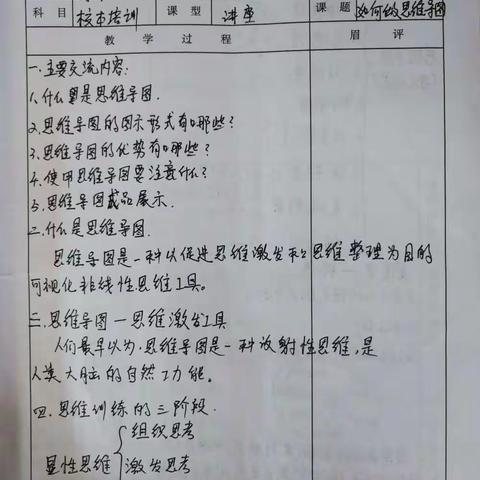 科目 校本培训 课型 讲座 课题 如何做思维导图
教学过程 眉评
一.主要交流内容:
1.什么是思维导图.
2.思维导图的图示形式有哪些?
3.思维导图的优势有哪些?
4.使用思维导图要注意什么?
5.思维导图成品展示.
二.什么是思维导图.
思维导图是一种以促进思维激发和思维整理为目的
可视化非线性思维工具。
三.思维导图—思维激发工具
人们最早以为.思维导图是一种放射性思维,是
人类大脑的自然功能。
四.思维训练的三阶段.
组织思考
显性思维 激发思考